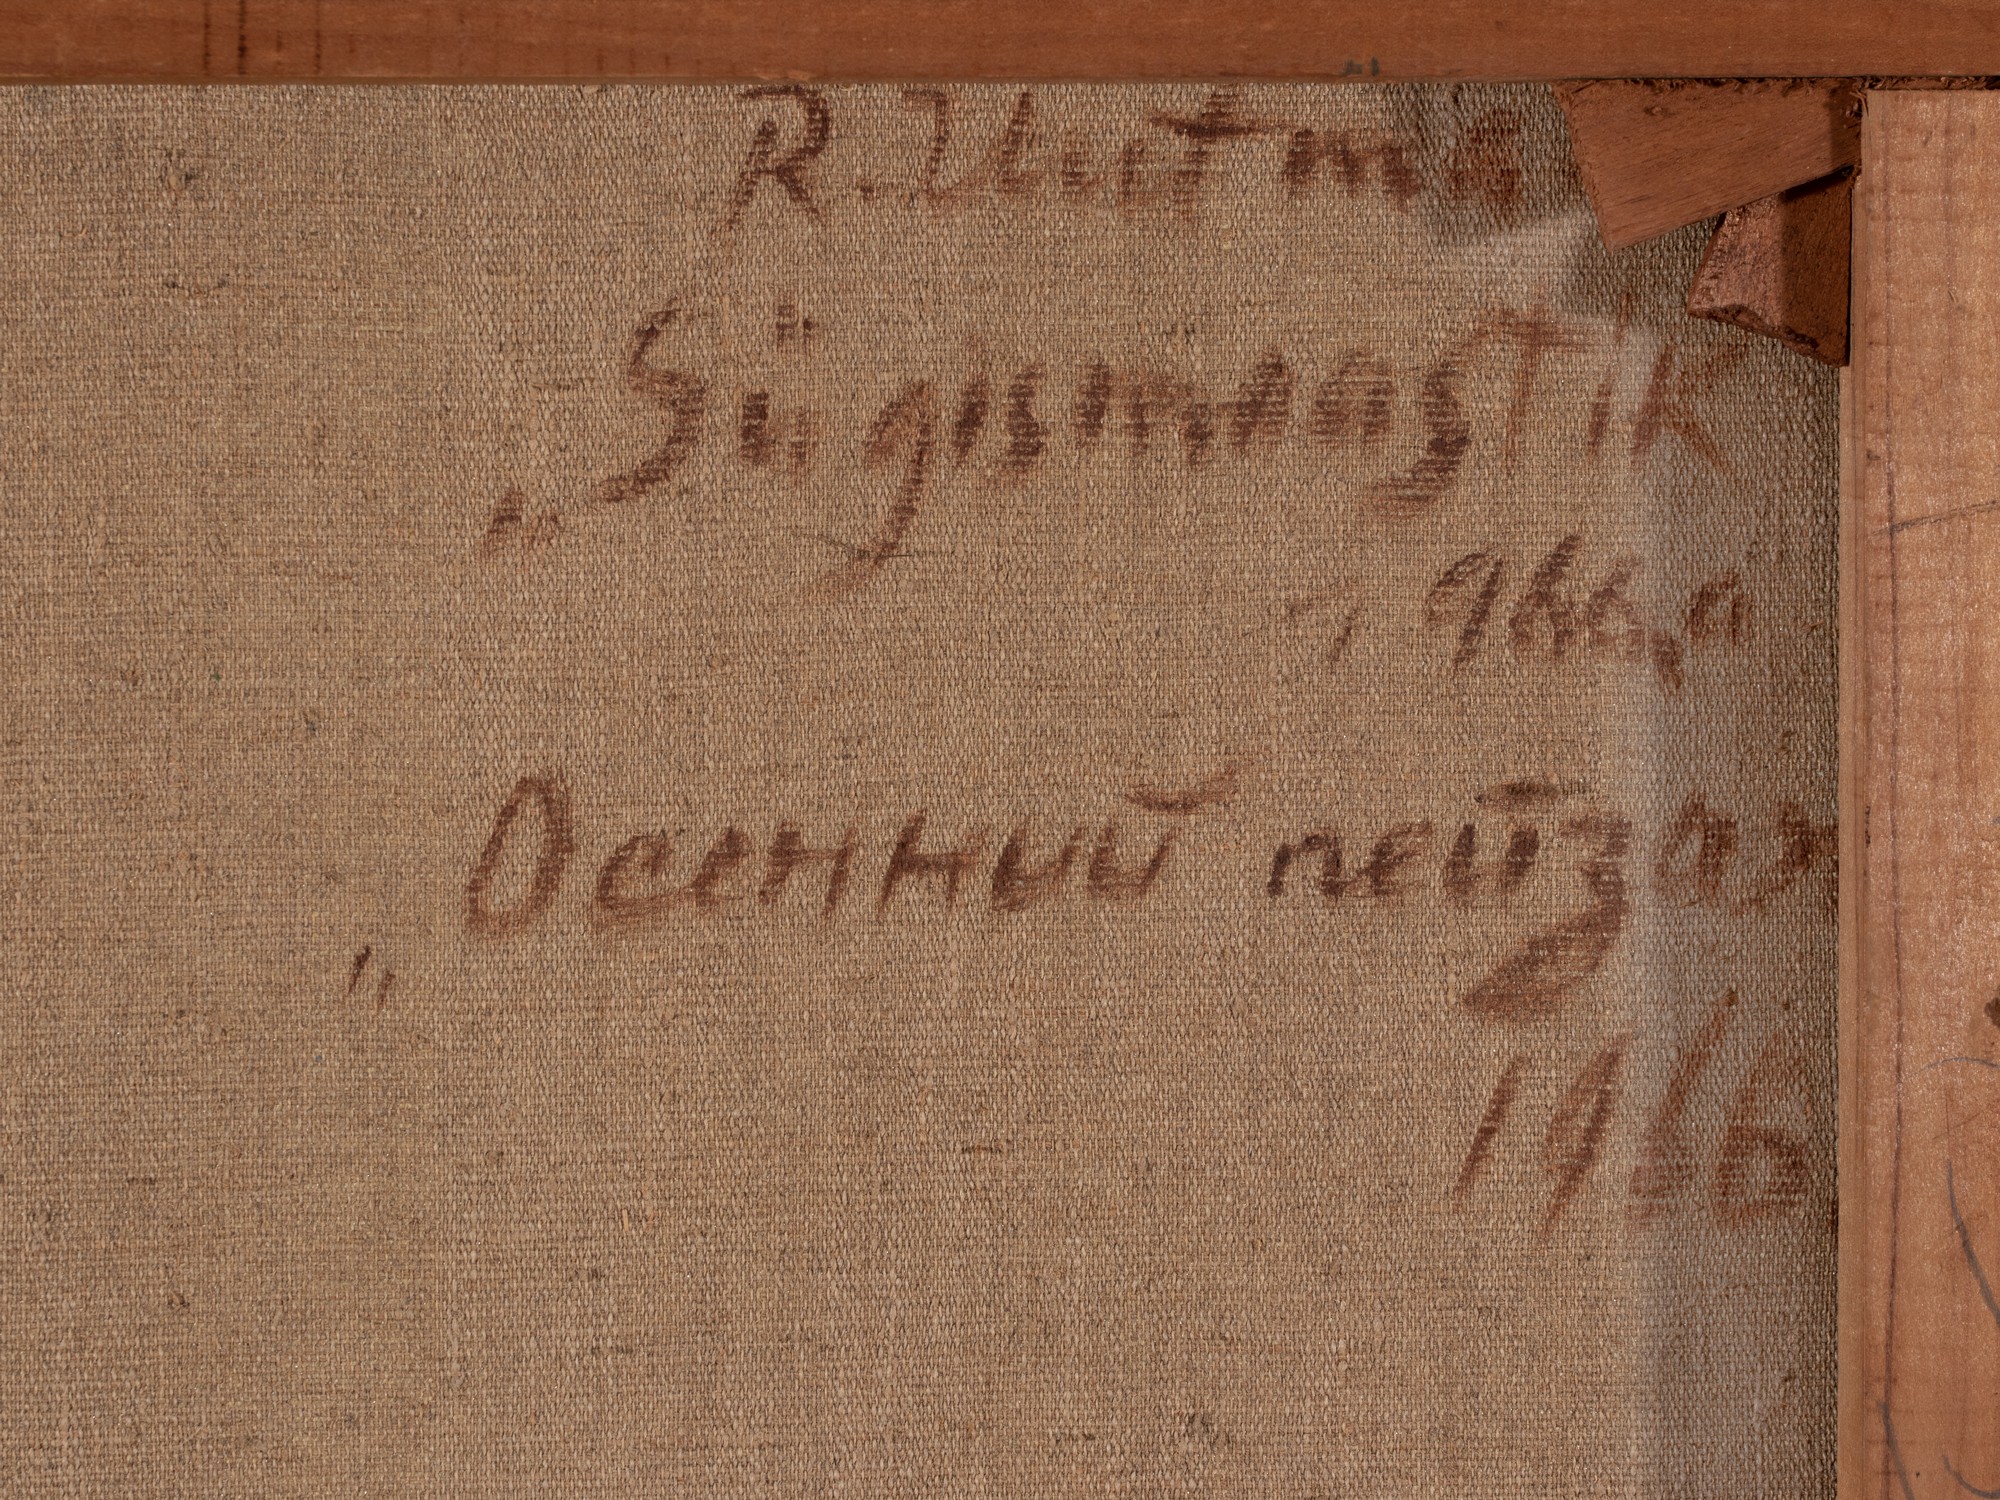 R. Uutma
„Sügismaastik
1966.a
„Осенний пейзаж
1966